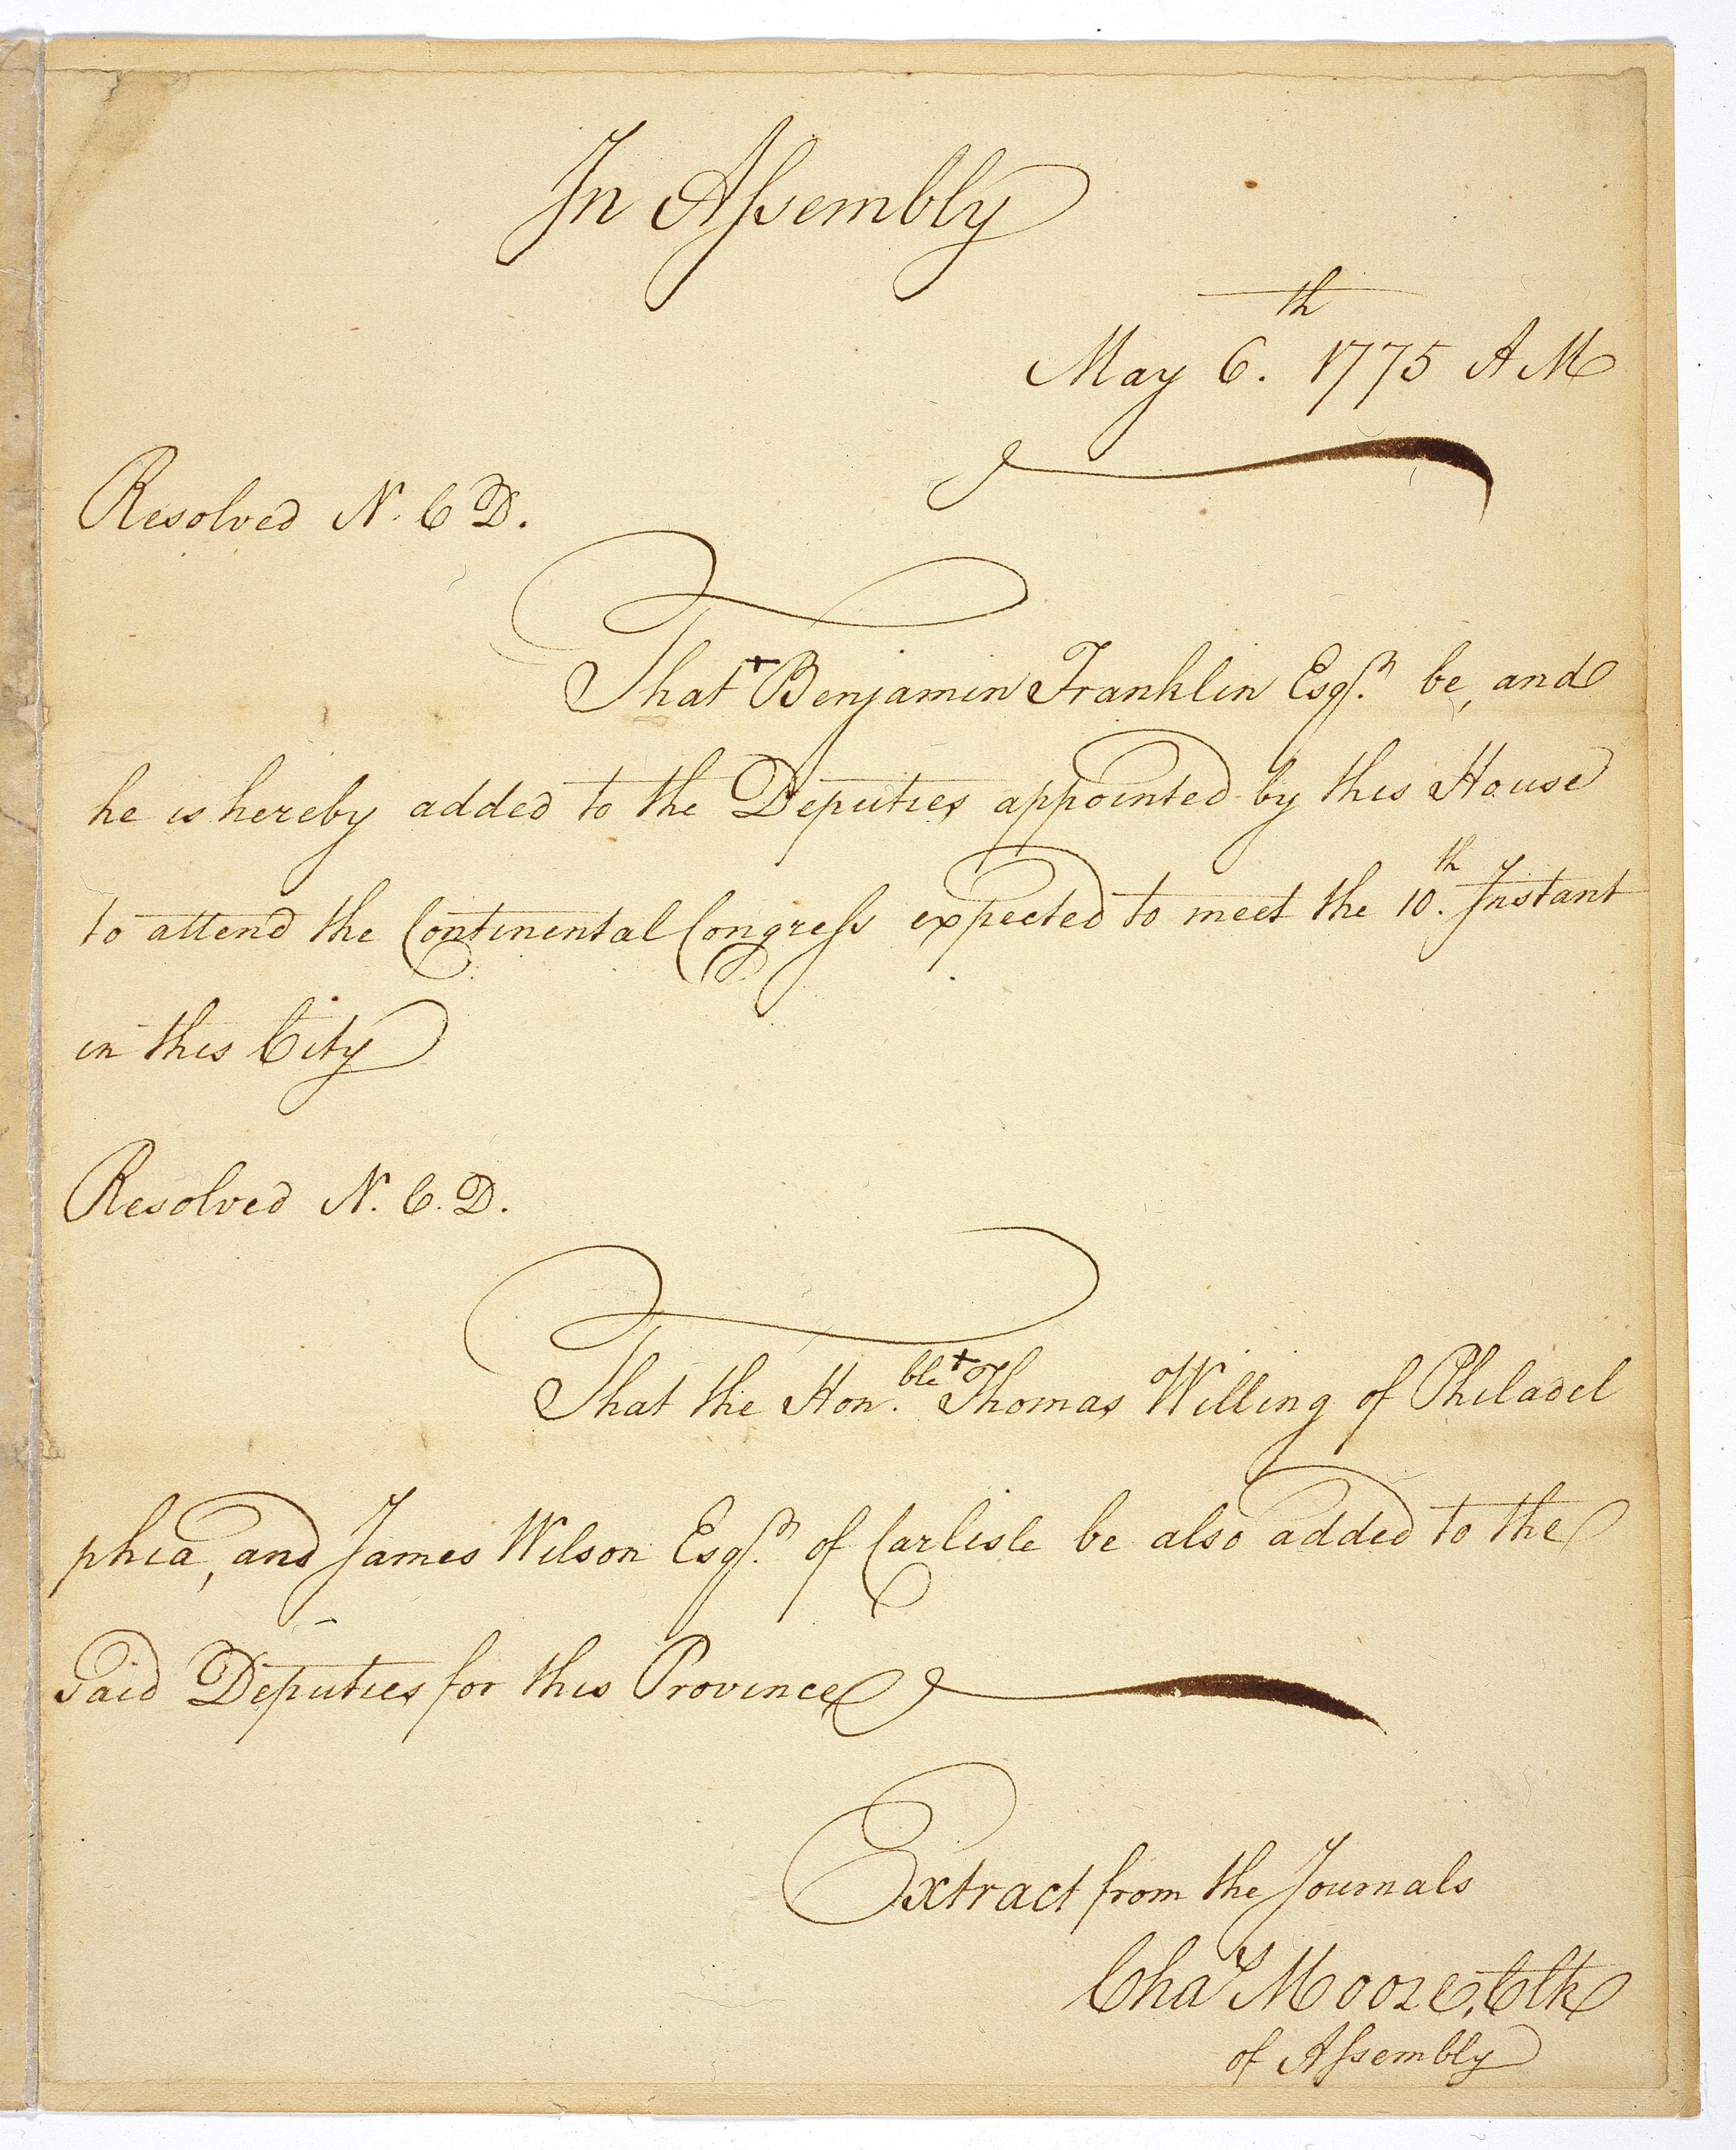 In Assembly
May 6.th 1775 A M
Resolved N. C D.
That + Benjamin Franklin Esqr. be, and
he is hereby added to the Deputies appointed by this House
to attend the Continental Congress expected to meet the 10.th Instant
in this City
Resolved N. C. D.
That the Hon.ble + Thomas Willing of Philadel
phia, and James Wilson Esqr. of Carlisle be also added to the
Said Deputies for this Province
Extract from the Journals
Chas Moore, Clk
of Assembly